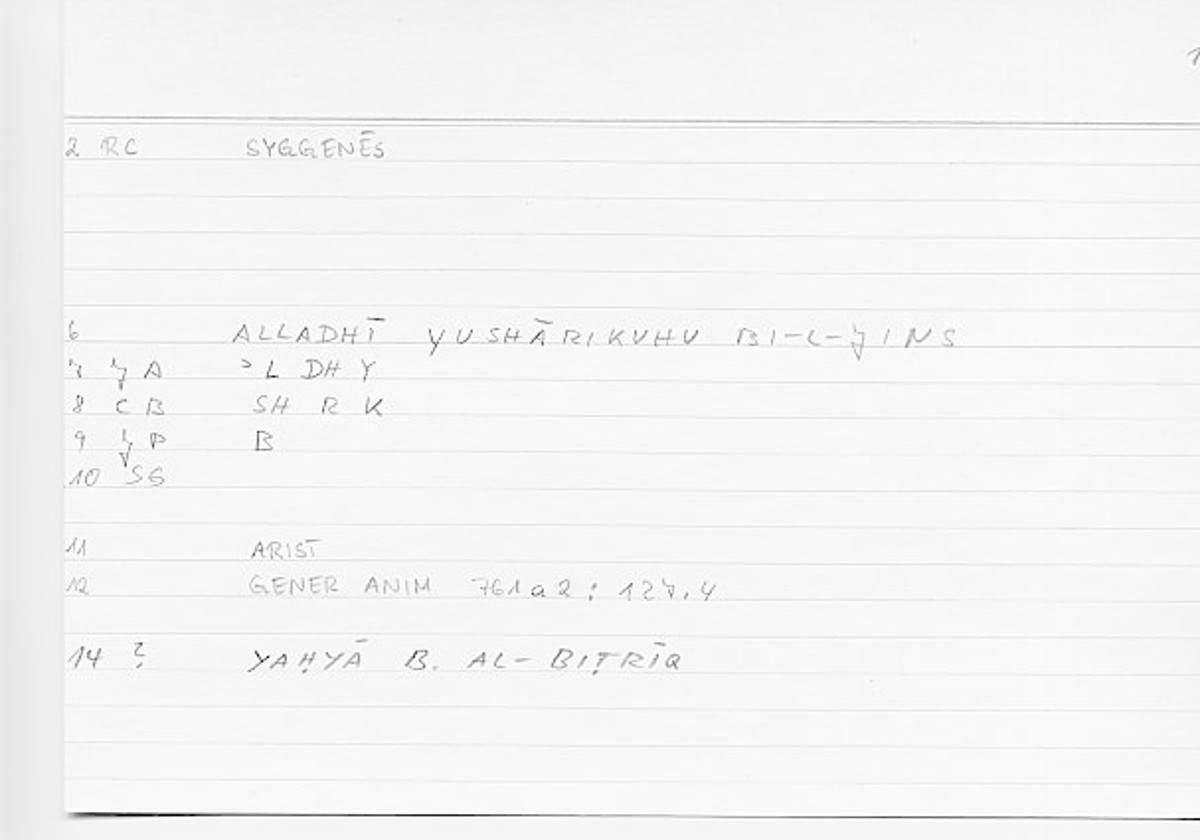 1
2 RC SYGGENĒS
6 ALLADHĪ YUSHĀRIKUHU BI-L-JINS
7 JA ʾL DH Y
8 CB SH R K
9 JP B
10 SG
11 ARIST
12 GENER ANIM 761a2 ; 127,4
14 ? YAḤYĀ B. AL-BIṬRĪQ